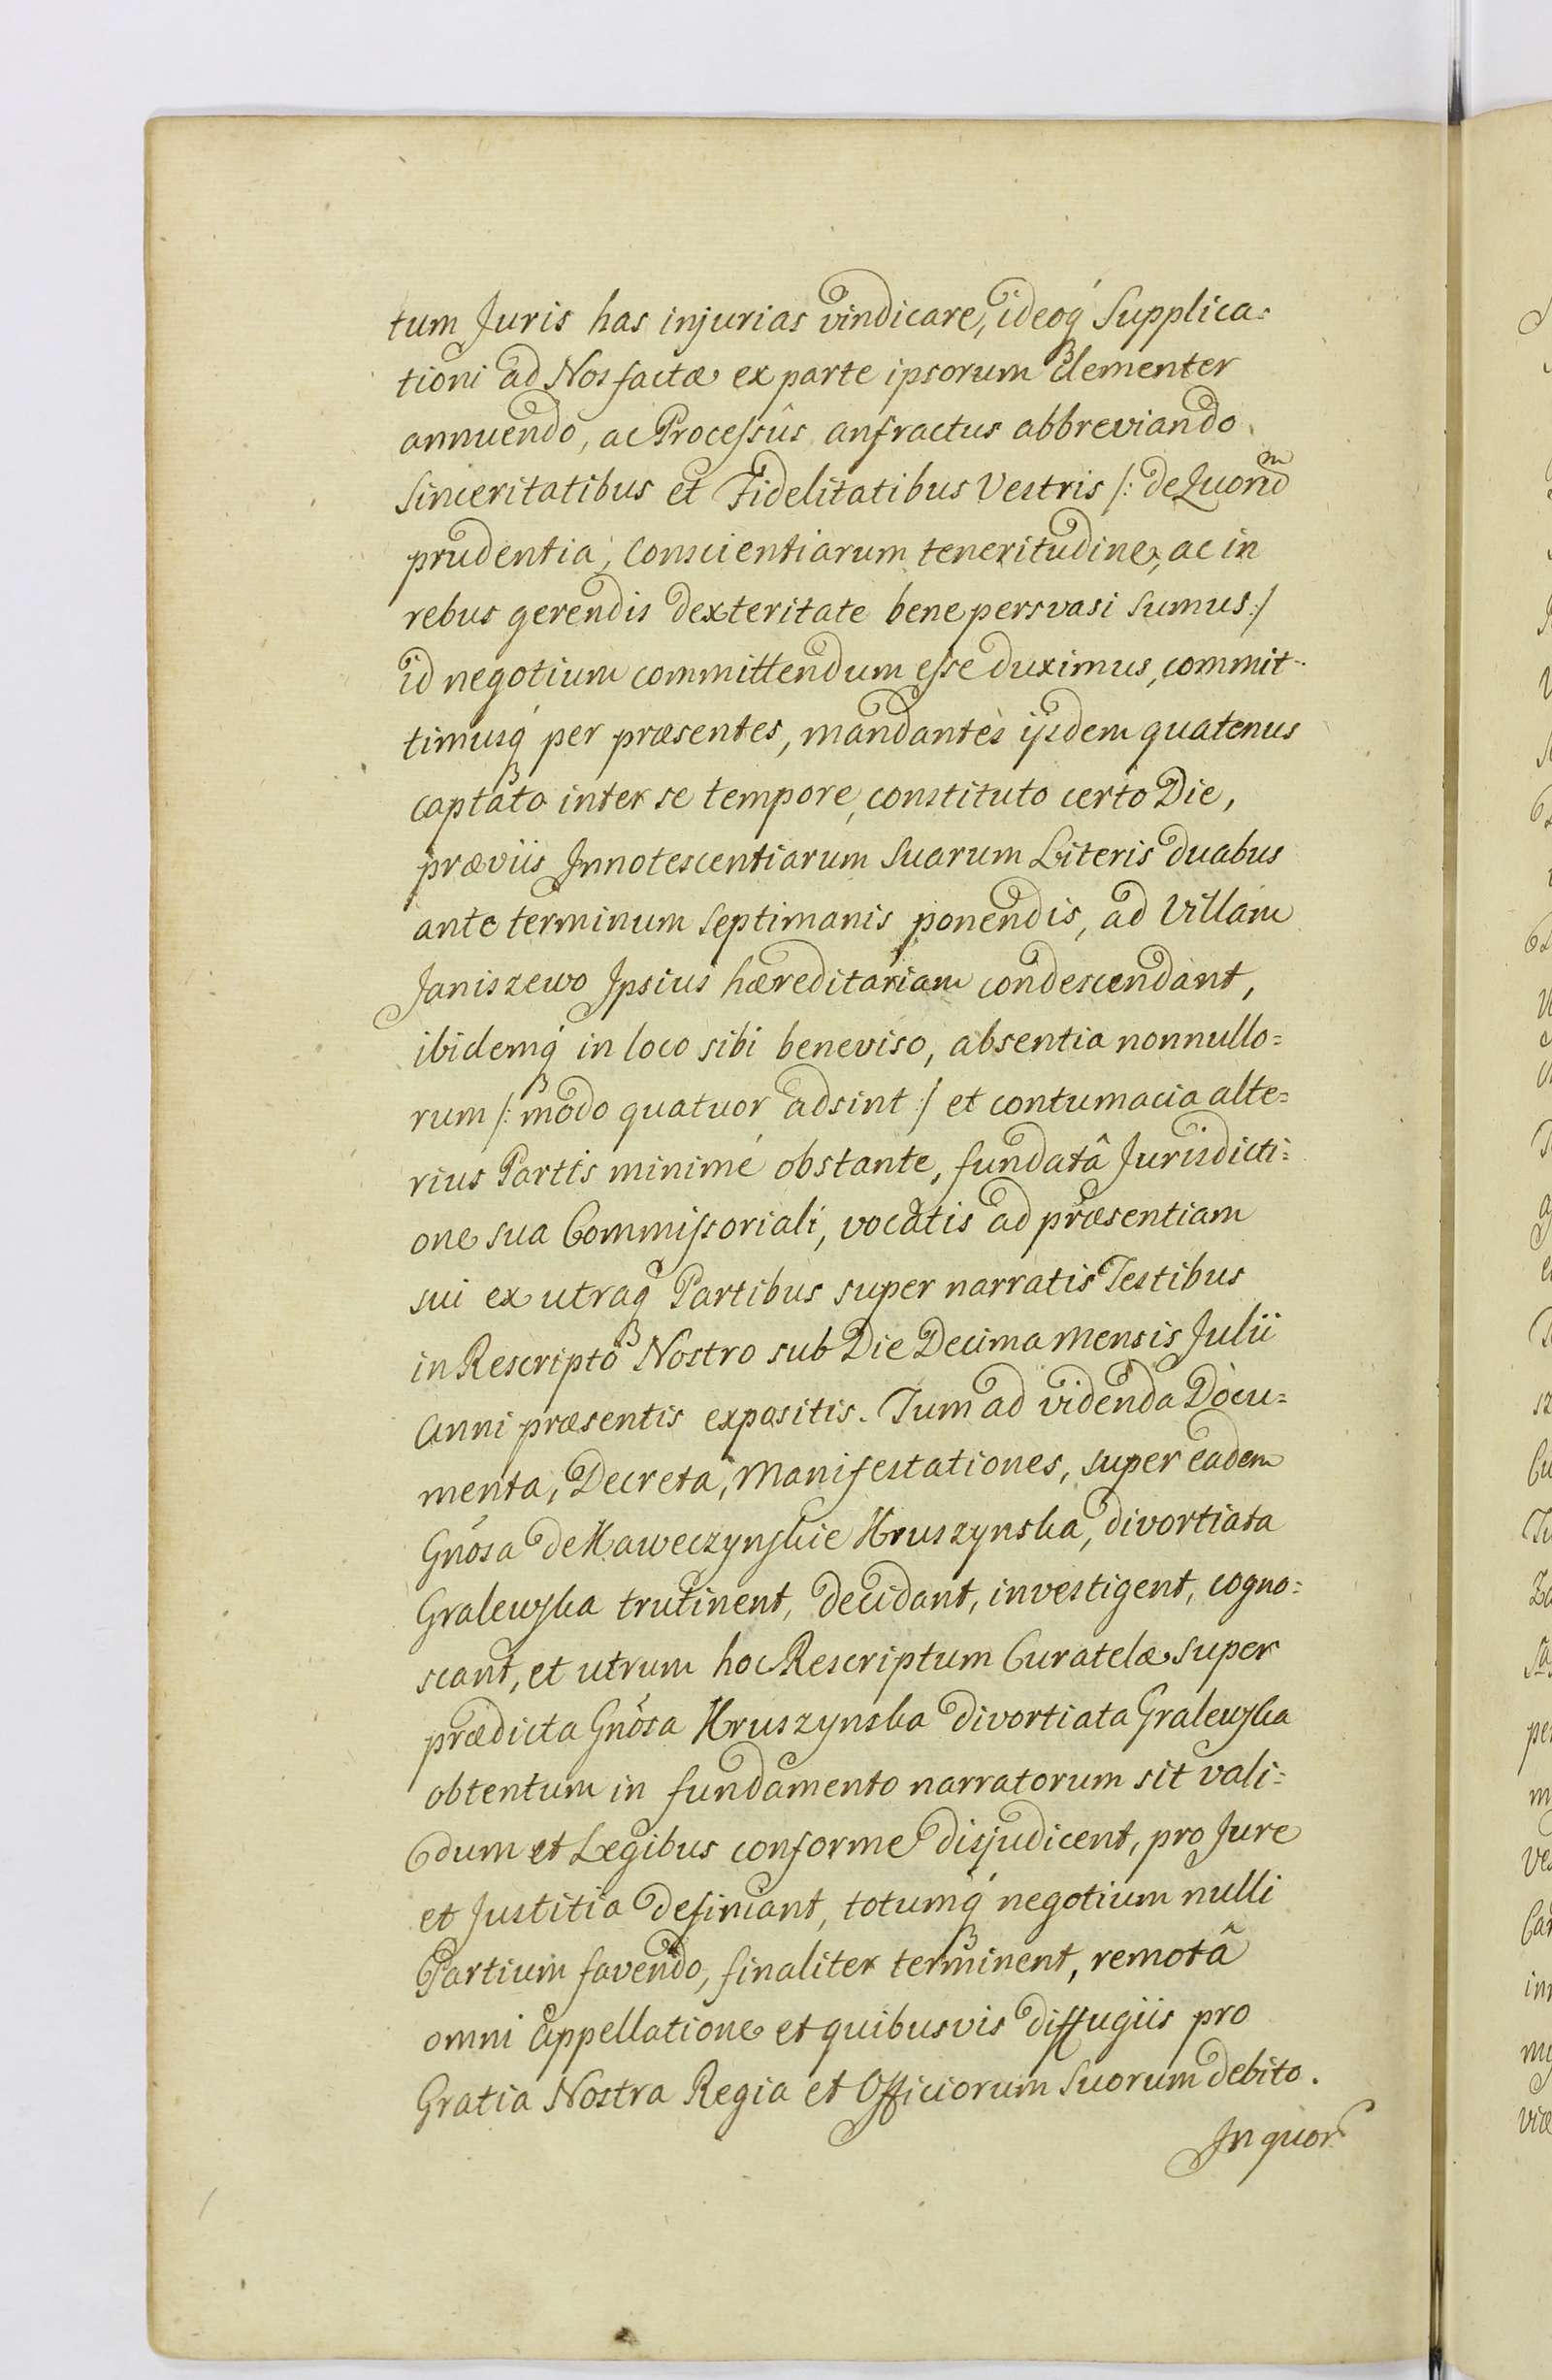 tum Juris has injurias vindicare, ideoq́ꝫ Supplica=
tioni ad Nos factæ ex parte ipsorum clementer
annuendo, ac Processûs anfractus abbreviando
Sinceritatibus et Fidelitatibus Vestris /: de Quorũm
prudentia, Conscientiarum teneritudine, ac in
rebus gerendis dexteritate bene persvasi sumus :/
id negotium committendum esse duximus, commit=
timusq́ꝫ per præsentes, mandantes ijsdem quatenus
captato inter se tempore, constituto certo Die,
præviis Innotescentiarum Suarum Literis duabus
ante terminum Septimanis ponendis, ad Villam
Janiszewo Ipsius hæreditariam condescendant,
ibidemq́ꝫ in loco sibi beneviso, absentia nonnullo=
rum /: modo quatuor adsint :/ et contumacia alte=
rius Partis minimé obstante, fundatâ Jurisdicti=
one sua Commissoriali, vocatis ad præsentiam
sui ex utraqꝫ Partibus super narratis Testibus
in Rescripto Nostro sub Die Decima Mensis Julii
Anni præsentis expositis. Tum ad videnda Docu=
menta, Decreta, Manifestationes, super eadem
Gnõsa de Kaweczynskie Kruszynska, divortiata
Gralewska trutinent, decidant, investigent, cogno=
scant, et utrum hoc Rescriptum Curatelæ super
prædicta Gnõsa Kruszynska divortiata Gralewska
obtentum in fundamento narratorum sit vali=
dum et Legibus conforme disjudicent, pro Jure
et Justitia definiant, totumq́ꝫ negotium nulli
Partium favendo, finaliter terminent, remotâ
omni Appellatione et quibusvis diffugiis pro
Gratia Nostra Regia et Officiorum Suorum debito.
In quor